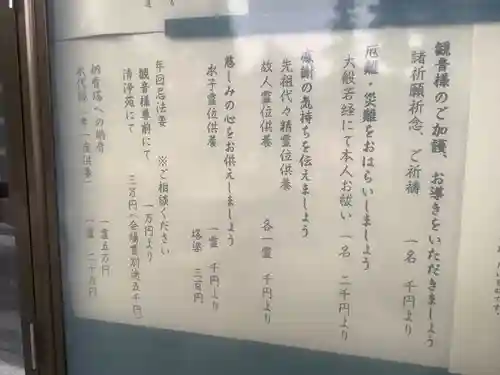 観音様のご加護、お導きをいただきましょう
諸祈願祈念、ご祈祷　一名　千円より
厄難・災難をおはらいしましょう
大般若経にて本人お祓い　一名　二千円より
感謝の気持ちを伝えましょう
先祖代々精霊位供養
故人霊位供養　各一霊　千円より
慈しみの心をお供えしましょう
水子霊位供養　一霊　千円より
塔婆　三百円
年回忌法要　※ご相談ください
観音様尊前にて　一万円より
清浄苑にて　三万円(会場費別途五千円)
納骨塔への納骨　一霊五万円
永代経　一霊　二十万円